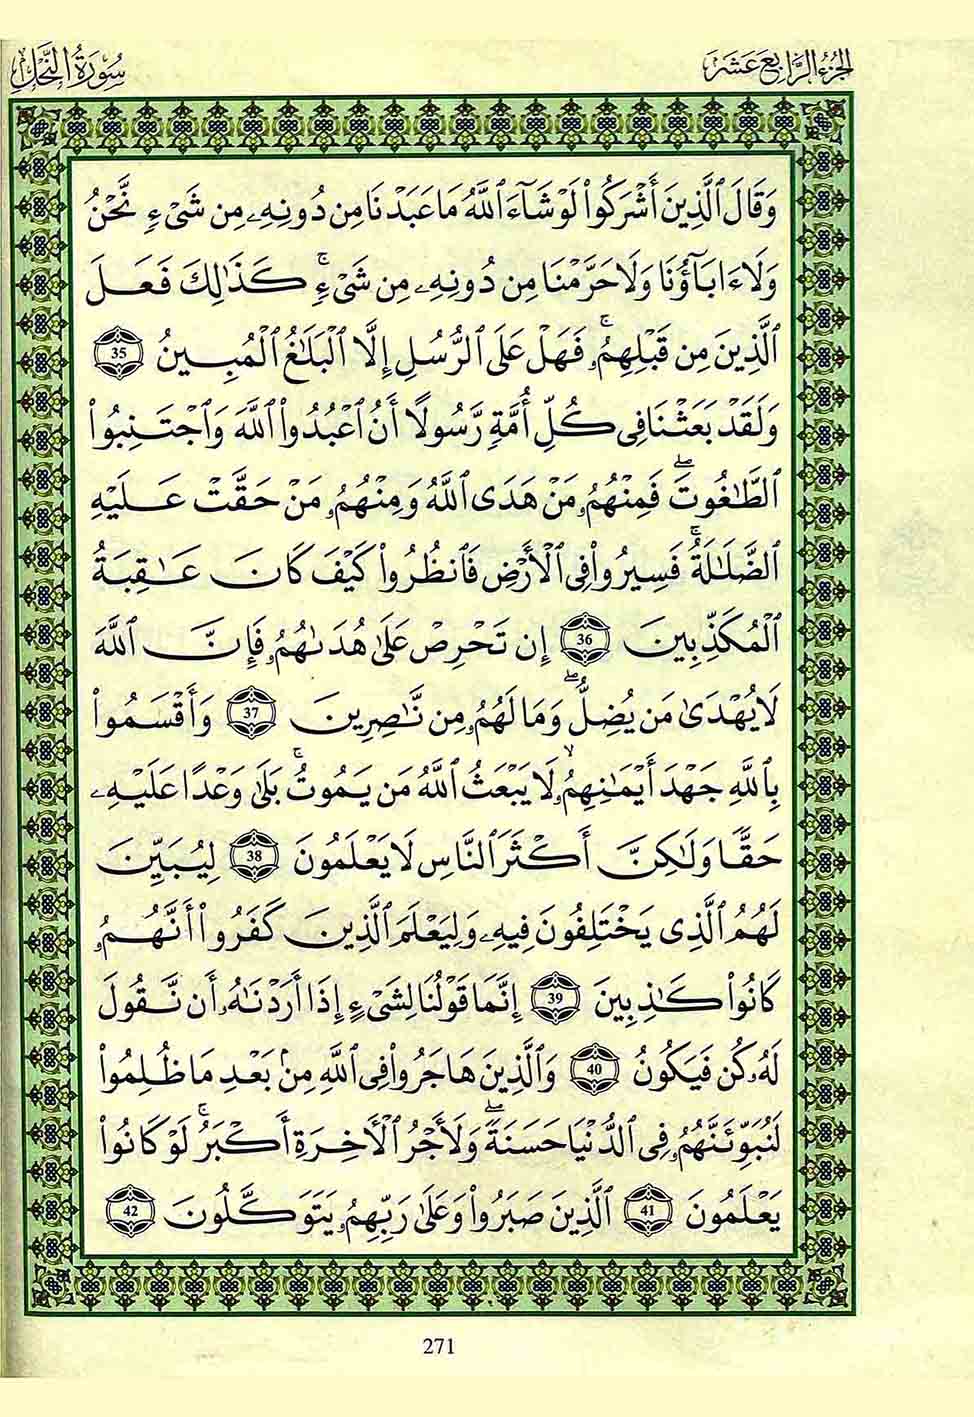 الجُزْءُ الرَّابِعَ عَشَرَ
سُورَةُ النَّحْلِ
وَقَالَ ٱلَّذِينَ أَشْرَكُوا۟ لَوْ شَآءَ ٱللَّهُ مَا عَبَدْنَا مِن دُونِهِۦ مِن شَىْءٍ نَّحْنُ
وَلَآ ءَابَآؤُنَا وَلَا حَرَّمْنَا مِن دُونِهِۦ مِن شَىْءٍۚ كَذَٰلِكَ فَعَلَ
ٱلَّذِينَ مِن قَبْلِهِمُۥۚ فَهَلْ عَلَى ٱلرُّسُلِ إِلَّا ٱلْبَلَٰغُ ٱلْمُبِينُ 35
وَلَقَدْ بَعَثْنَا فِى كُلِّ أُمَّةٍ رَّسُولًا أَنُ ٱعْبُدُوا۟ ٱللَّهَ وَٱجْتَنِبُوا۟
ٱلطَّٰغُوتَۖ فَمِنْهُمُۥ مَنْ هَدَى ٱللَّهُ وَمِنْهُمُۥ مَنْ حَقَّتْ عَلَيْهِ
ٱلضَّلَٰلَةُۚ فَسِيرُوا۟ فِى ٱلْأَرْضِ فَٱنظُرُوا۟ كَيْفَ كَانَ عَٰقِبَةُ
ٱلْمُكَذِّبِينَ 36 إِن تَحْرِصْ عَلَىٰ هُدَىٰهُمُۥ فَإِنَّ ٱللَّهَ
لَا يُهْدَىٰ مَن يُضِلُّۖ وَمَا لَهُمُۥ مِن نَّٰصِرِينَ 37 وَأَقْسَمُوا۟
بِٱللَّهِ جَهْدَ أَيْمَٰنِهِمُۥۙ لَا يَبْعَثُ ٱللَّهُ مَن يَمُوتُۚ بَلَىٰ وَعْدًا عَلَيْهِۦ
حَقًّا وَلَٰكِنَّ أَكْثَرَ ٱلنَّاسِ لَا يَعْلَمُونَ 38 لِيُبَيِّنَ
لَهُمُ ٱلَّذِى يَخْتَلِفُونَ فِيهِۦ وَلِيَعْلَمَ ٱلَّذِينَ كَفَرُوٓا۟ أَنَّهُمُۥ
كَانُوا۟ كَٰذِبِينَ 39 إِنَّمَا قَوْلُنَا لِشَىْءٍ إِذَآ أَرَدْنَٰهُۥ أَن نَّقُولَ
لَهُۥ كُن فَيَكُونُ 40 وَٱلَّذِينَ هَاجَرُوا۟ فِى ٱللَّهِ مِنۢ بَعْدِ مَا ظُلِمُوا۟
لَنُبَوِّئَنَّهُمُۥ فِى ٱلدُّنْيَا حَسَنَةًۖ وَلَأَجْرُ ٱلْأَخِرَةِ أَكْبَرُۚ لَوْ كَانُوا۟
يَعْلَمُونَ 41 ٱلَّذِينَ صَبَرُوا۟ وَعَلَىٰ رَبِّهِمُۥ يَتَوَكَّلُونَ 42
271